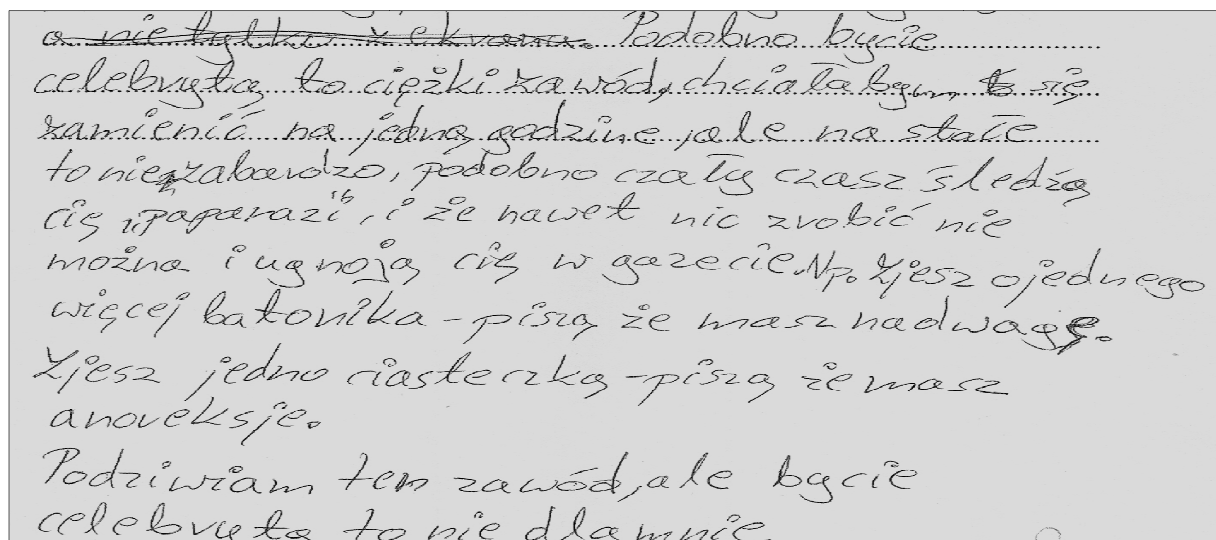 a nie tylko z ekranu. Podobno bycie
celebrytą to ciężki zawód, chciałabym się
zamienić na jedną godzine, ale na stałe
to nie zabardzo, podobno czały czasz śledżą
cię paparazi, i że nawet nic zrobić nie
można i ugnoją cię w gazecie. Np. Zjesz ojednego
więcej batonika - piszą że masz nadwagę.
Zjesz jedno ciasteczką - piszą że masz
anoreksje.
Podziwiam ten zawód, ale bycie
celebrytą to nie dla mnie.